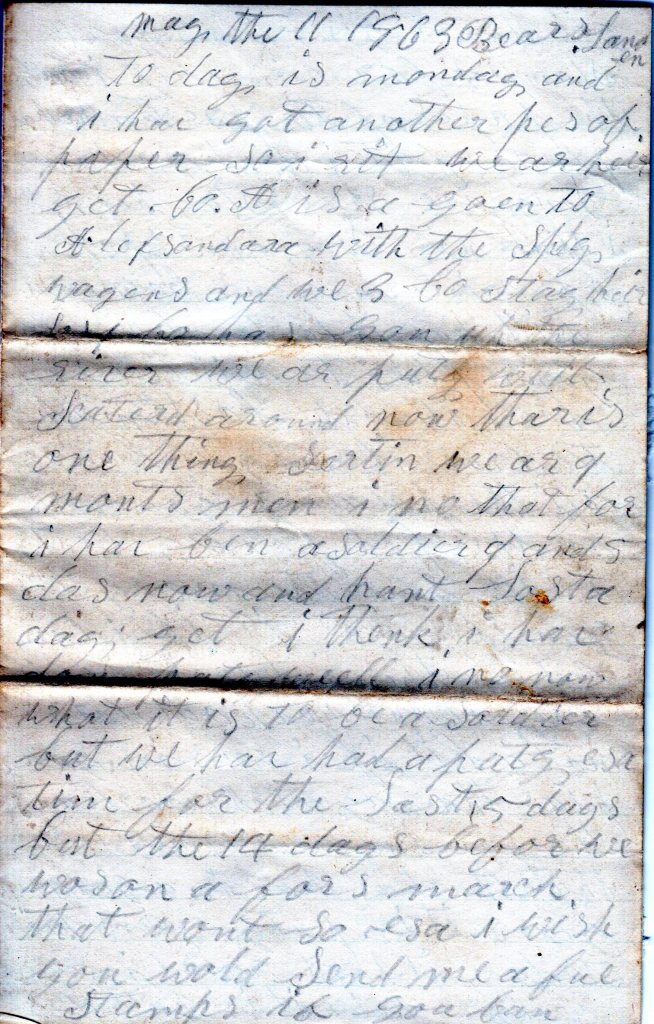 may the 11 1863 Bears Landen
To day is monday and
i hav got another pes of
paper so i rit we ar hear
yet Co. A is a goen to
Alefsandara with the Spig
wagens and we 3 Co stay hear
gon up the
river we ar puty wit
Scaterd around now thar is
one thing Sertin we ar 9
monts men i no that for
i hav ben a soldier 9 and 5
das now and hant Losta
day yet i think i hav
don puty well i no now
what it is to be a soldier
but we hav had a puty esa
tim for the Last 15 days
but the 14 days befor we
wos on a fors march
that wont so esa i wish
you wold Send me a fue
Stamps if you can